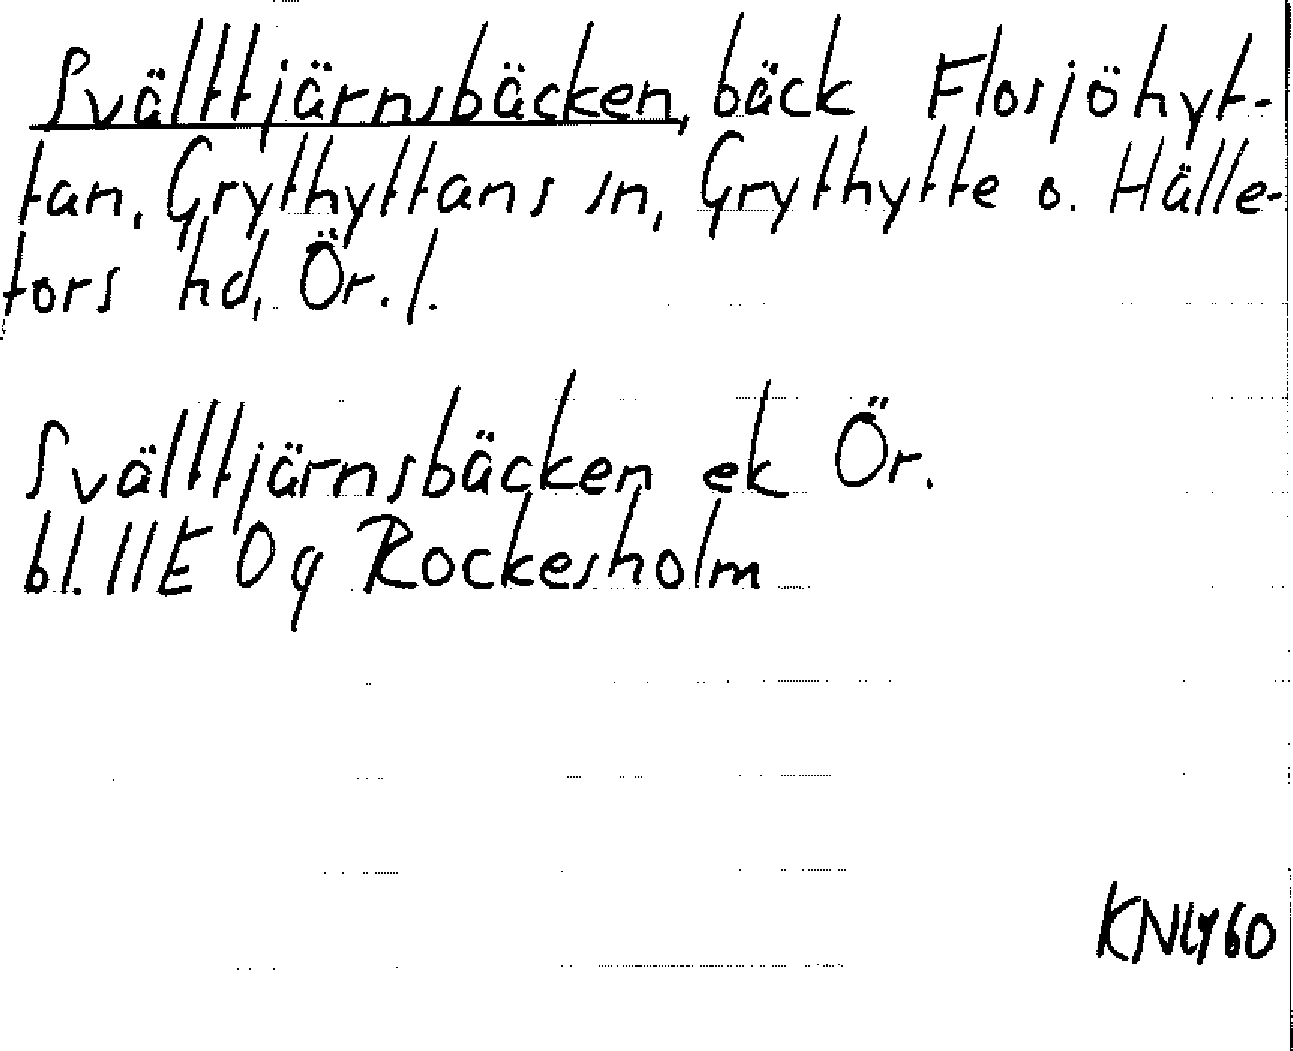 Svälttjärnsbäcken, bäck Flosjöhyt-
tan, Grythyttans sn, Grythytte o. Hälle-
fors hd, Ör. l.
Svälttjärnsbäcken ek Ör.
bl. 11E 0g Rockesholm
KNLy60